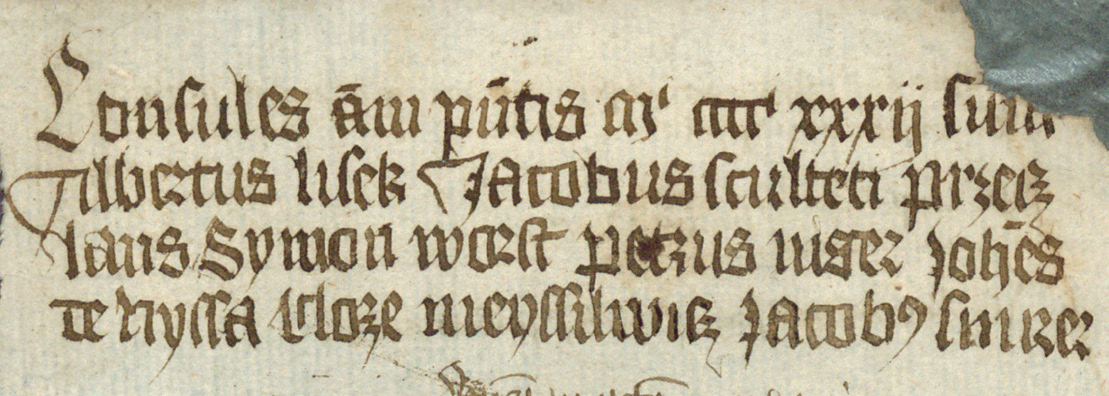 Consules ãni pñtis mº ccccº xxxij sunt
Albertus lisek Jacobus sculteti przecz
laus Symon worst petrus niger Johẽs
de nyssa cloze meyssilwicz Jacobꝰ smrer